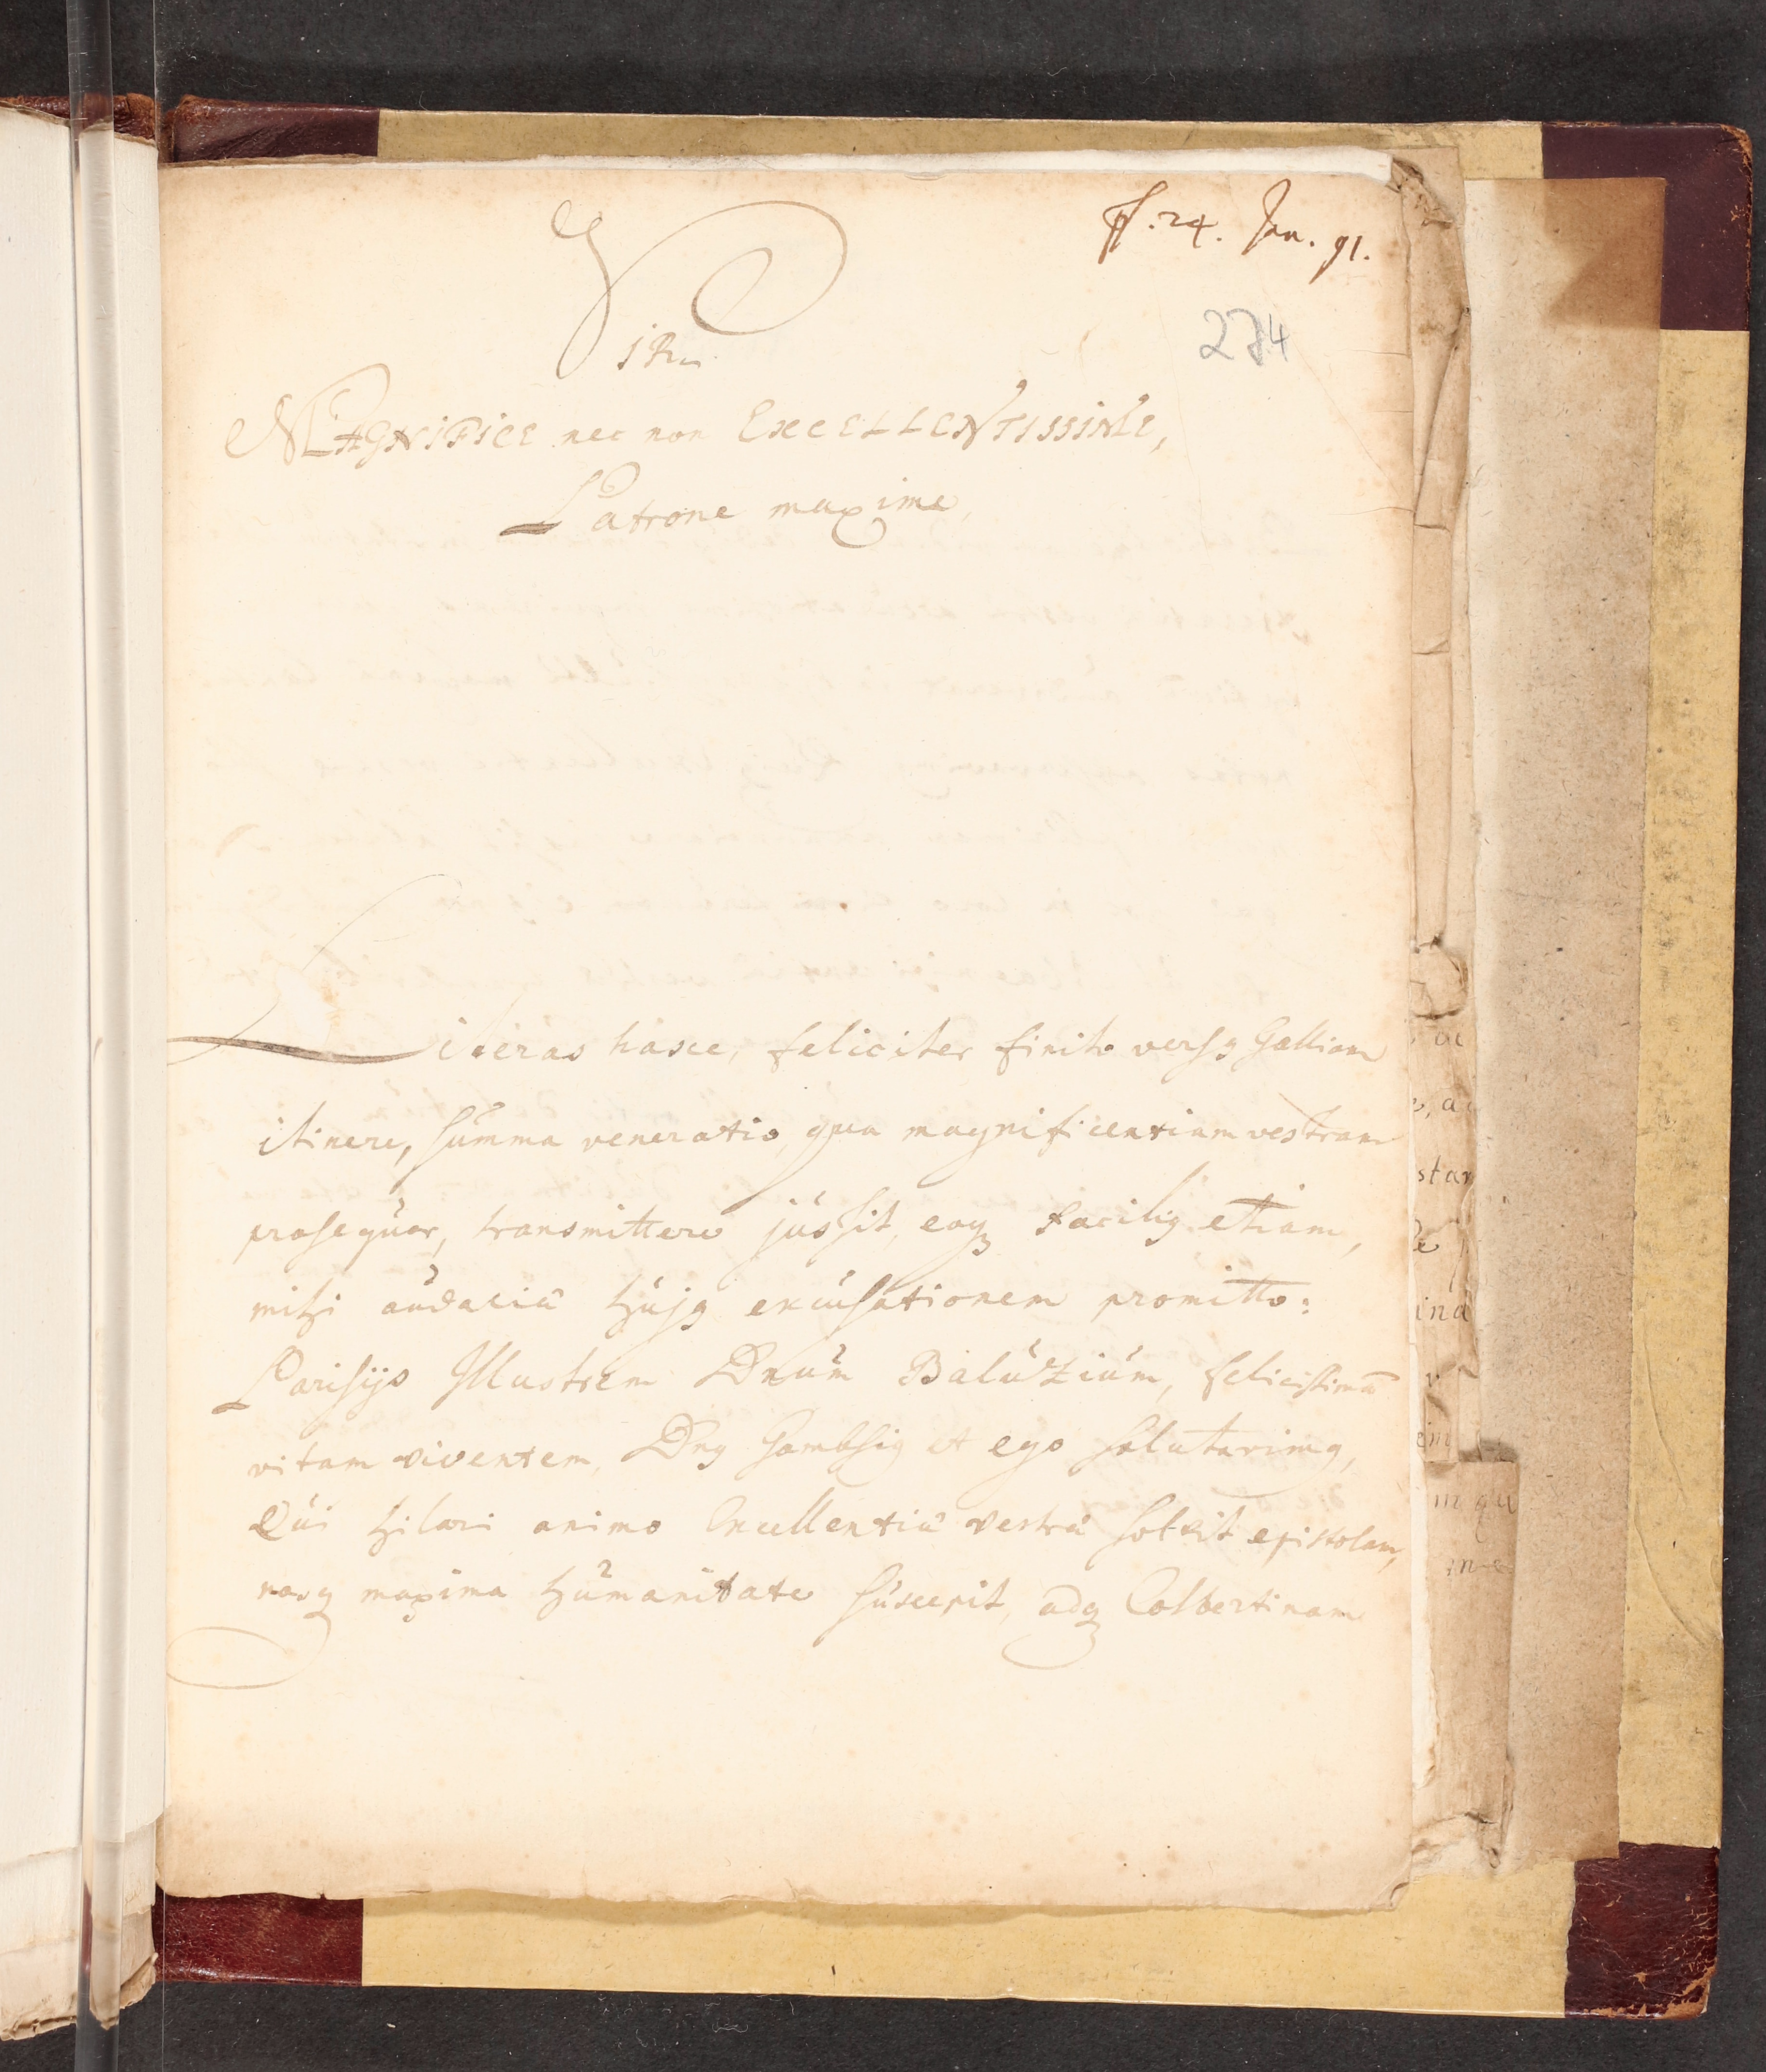 pſ. 24. Jan. 91.
274
Vir
MAGNIFICE nec non EXCELLENTISSIME,
Patrone maxime,
Literas hasce, feliciter finito versꝰ Galliam
itinere, summa veneratio, qua magnificentiam vestram
prosequor, transmittere jussit, eaqꝫ facilis etiam,
mihi audaciæ hujꝰ excusationem promitto:
Parisijs Illustrem Dnum Baluzium, felicissimā
vitam viventem, Dnꝰ Gambsiꝰ et ego salutavimꝰ,
Qui hilari animo Excellentiæ vestræ solvit epistolam,
nosqꝫ maxima humanitate suscepit, adqꝫ Colbertinam